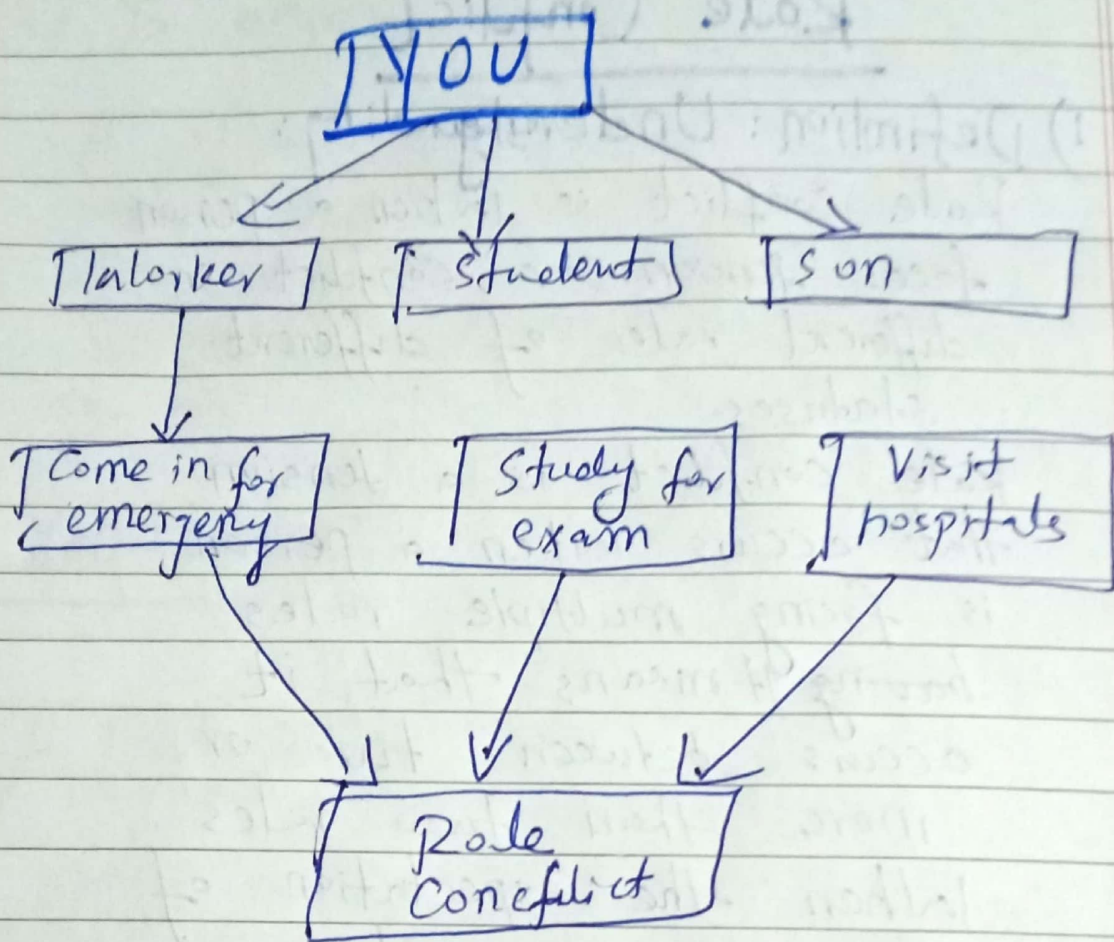 YOU
Worker
Student
Son
Come in for
emergeny
Study for
exam
Visit
hospitals
Role
Coneflict